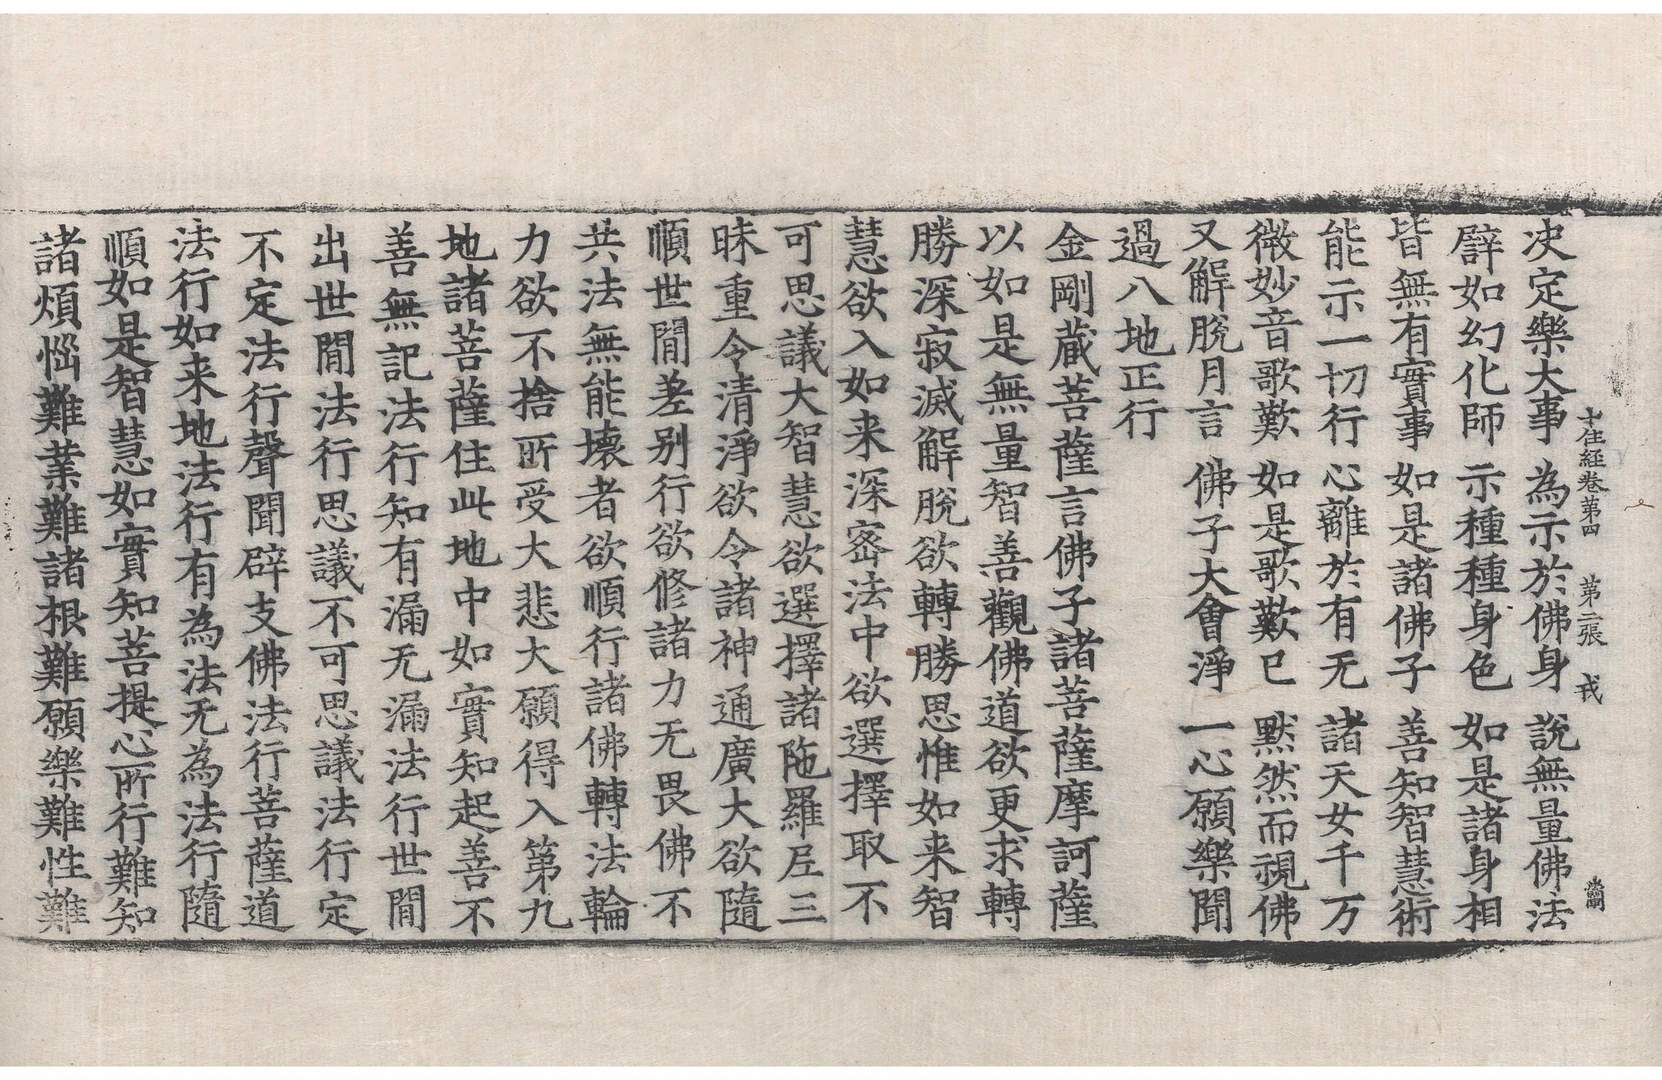 十住經卷第四 第二張 戎
决定樂大事 為示於佛身 說無量佛法
譬如幻化師 示種種身色 如是諸身相
皆無有實事 如是諸佛子 善知智慧術
能示一切行 心離於有无 諸天女千万
微妙音歌歎 如是歌歎已 默然而視佛
又解脫月言 佛子大會淨 一心願樂聞
過八地正行
金剛藏菩薩言佛子諸菩薩摩訶薩
以如是無量智善觀佛道欲更求轉
勝深寂滅解脫欲轉勝思惟如来智
慧欲入如来深密法中欲選擇取不
可思議大智慧欲選擇諸陁羅尼三
昧重令清淨欲令諸神通廣大欲隨
順世閒差别行欲修諸力无畏佛不
共法無能壞者欲順行諸佛轉法輪
力欲不捨所受大悲大願得入第九
地諸菩薩住此地中如實知起善不
善無記法行知有漏无漏法行世閒
出世閒法行思議不可思議法行定
不定法行聲聞辟支佛法行菩薩道
法行如来地法行有為法无為法行隨
順如是智慧如實知菩提心所行難知
諸煩惱難業難諸根難願樂難性難